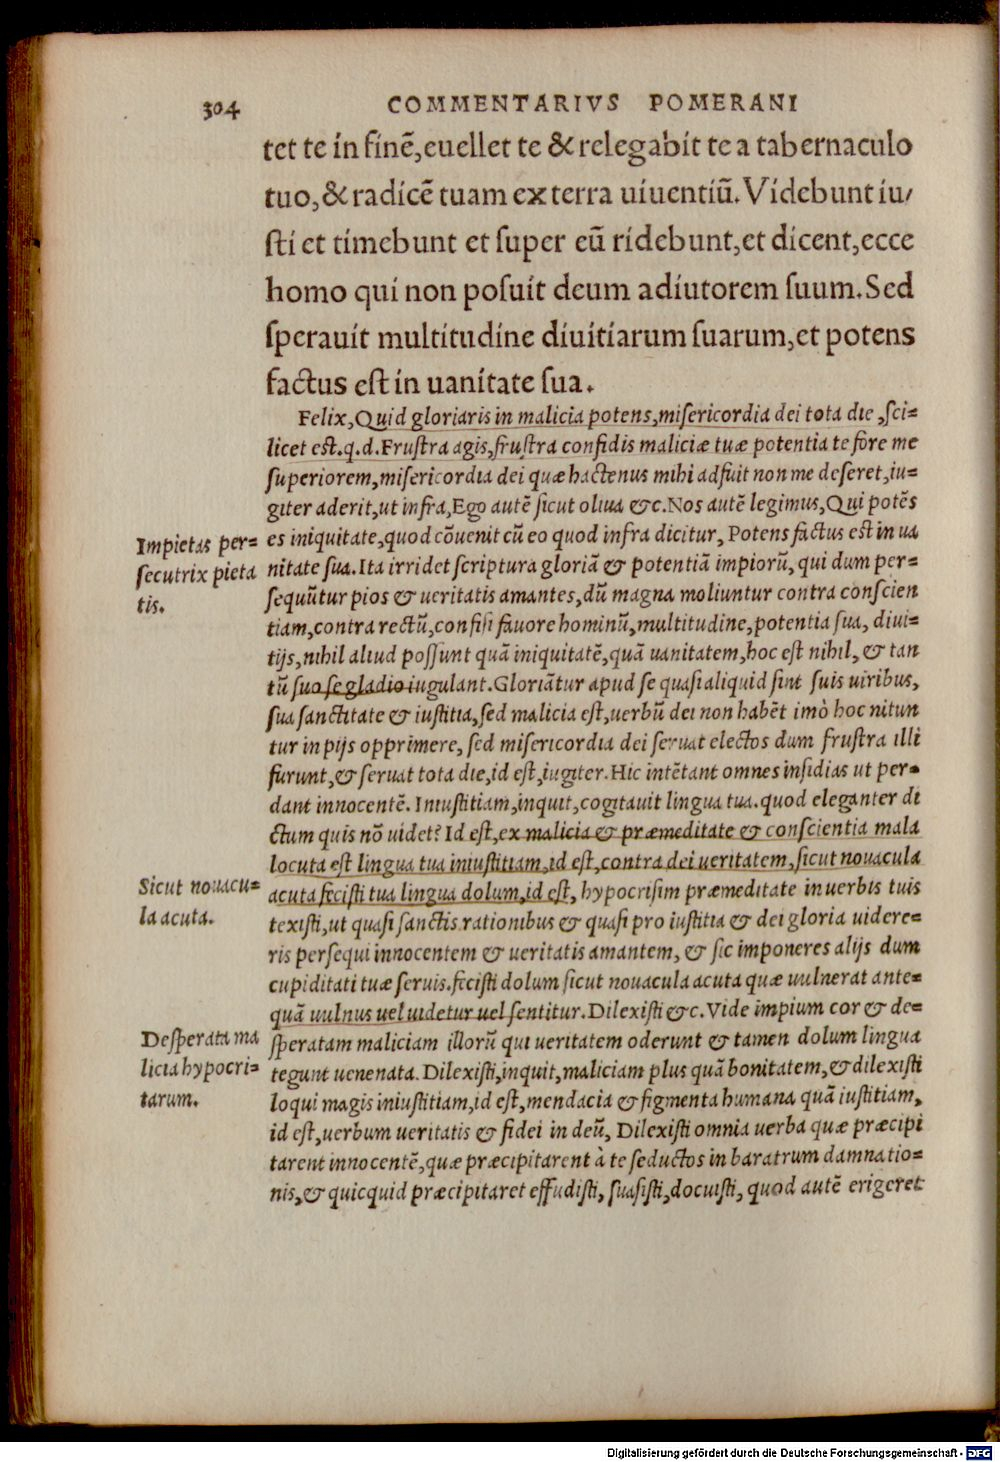 304 COMMENTARIVS POMERANI
tet te in finē, euellet te & relegabit te a tabernaculo
tuo, & radicē tuam ex terra uiuentiū. Videbunt iu/
ſti et timebunt et ſuper eū ridebunt, et dicent, ecce
homo qui non poſuit deum adiutorem ſuum. Sed
ſperauit multitudine diuitiarum ſuarum, et potens
factus eſt in uanitate ſua.
Felix, Quid gloriaris in malicia potens, miſericordia dei tota die, ſci=
licet eſt. q. d. Fruſtra agis, fruſtra confidis maliciæ tuæ potentia te fore me
ſuperiorem, miſericordia dei quæ hactenus mihi adfuit non me deſeret, iu=
giter aderit, ut infra, Ego autē ſicut oliua &c. Nos autē legimus, Qui potēs
es iniquitate, quod cōuenit cū eo quod infra dicitur, Potens factus eſt in ua
nitate ſua. Ita irridet ſcriptura gloriā & potentiā impiorū, qui dum per=
ſequūtur pios & ueritatis amantes, dū magna moliuntur contra conſcien
tiam, contra rectū, confiſi fauore hominū, multitudine, potentia ſua, diui=
tijs, nihil aliud poſſunt quā iniquitatē, quā uanitatem, hoc eſt nihil, & tan
tū ſuo ſe gladio iugulant. Gloriātur apud ſe quaſi aliquid ſint ſuis uiribus,
ſua ſanctitate & iuſtitia, ſed malicia eſt, uerbū dei non habēt imò hoc nitun
tur in pijs opprimere, ſed miſericordia dei ſeruat electos dum fruſtra illi
furunt, & ſeruat tota die, id eſt, iugiter. Hic intētant omnes inſidias ut per=
dant innocentē. Iniuſtitiam, inquit, cogitauit lingua tua. quod eleganter di
ctum quis nō uidet? Id eſt, ex malicia & præmeditate & conſcientia mala
locuta eſt lingua tua iniuſtitiam, id eſt, contra dei ueritatem, ſicut nouacula
acuta feciſti tua lingua dolum, id eſt, hypocriſim præmeditate in uerbis tuis
texiſti, ut quaſi ſanctis rationibus & quaſi pro iuſtitia & dei gloria uidere=
ris perſequi innocentem & ueritatis amantem, & ſic imponeres alijs dum
cupiditati tuæ ſeruis. feciſti dolum ſicut nouacula acuta quæ uulnerat ante=
quā uulnus uel uidetur uel ſentitur. Dilexiſti &c. Vide impium cor & de=
ſperatam maliciam illorū qui ueritatem oderunt & tamen dolum lingua
tegunt uenenata. Dilexiſti, inquit, maliciam plus quā bonitatem, & dilexiſti
loqui magis iniuſtitiam, id eſt, mendacia & figmenta humana quā iuſtitiam,
id eſt, uerbum ueritatis & fidei in deū, Dilexiſti omnia uerba quæ præcipi
tarent innocentē, quæ præcipitarent à te ſeductos in baratrum damnatio=
nis, & quicquid præcipitaret effudiſti, ſuaſiſti, docuiſti, quod autē erigeret
Impietas per=
ſecutrix pieta
tis.
Sicut nouacu=
la acuta.
Deſperata ma
licia hypocri=
tarum.
Digitalisierung gefördert durch die Deutsche Forschungsgemeinschaft - DFG